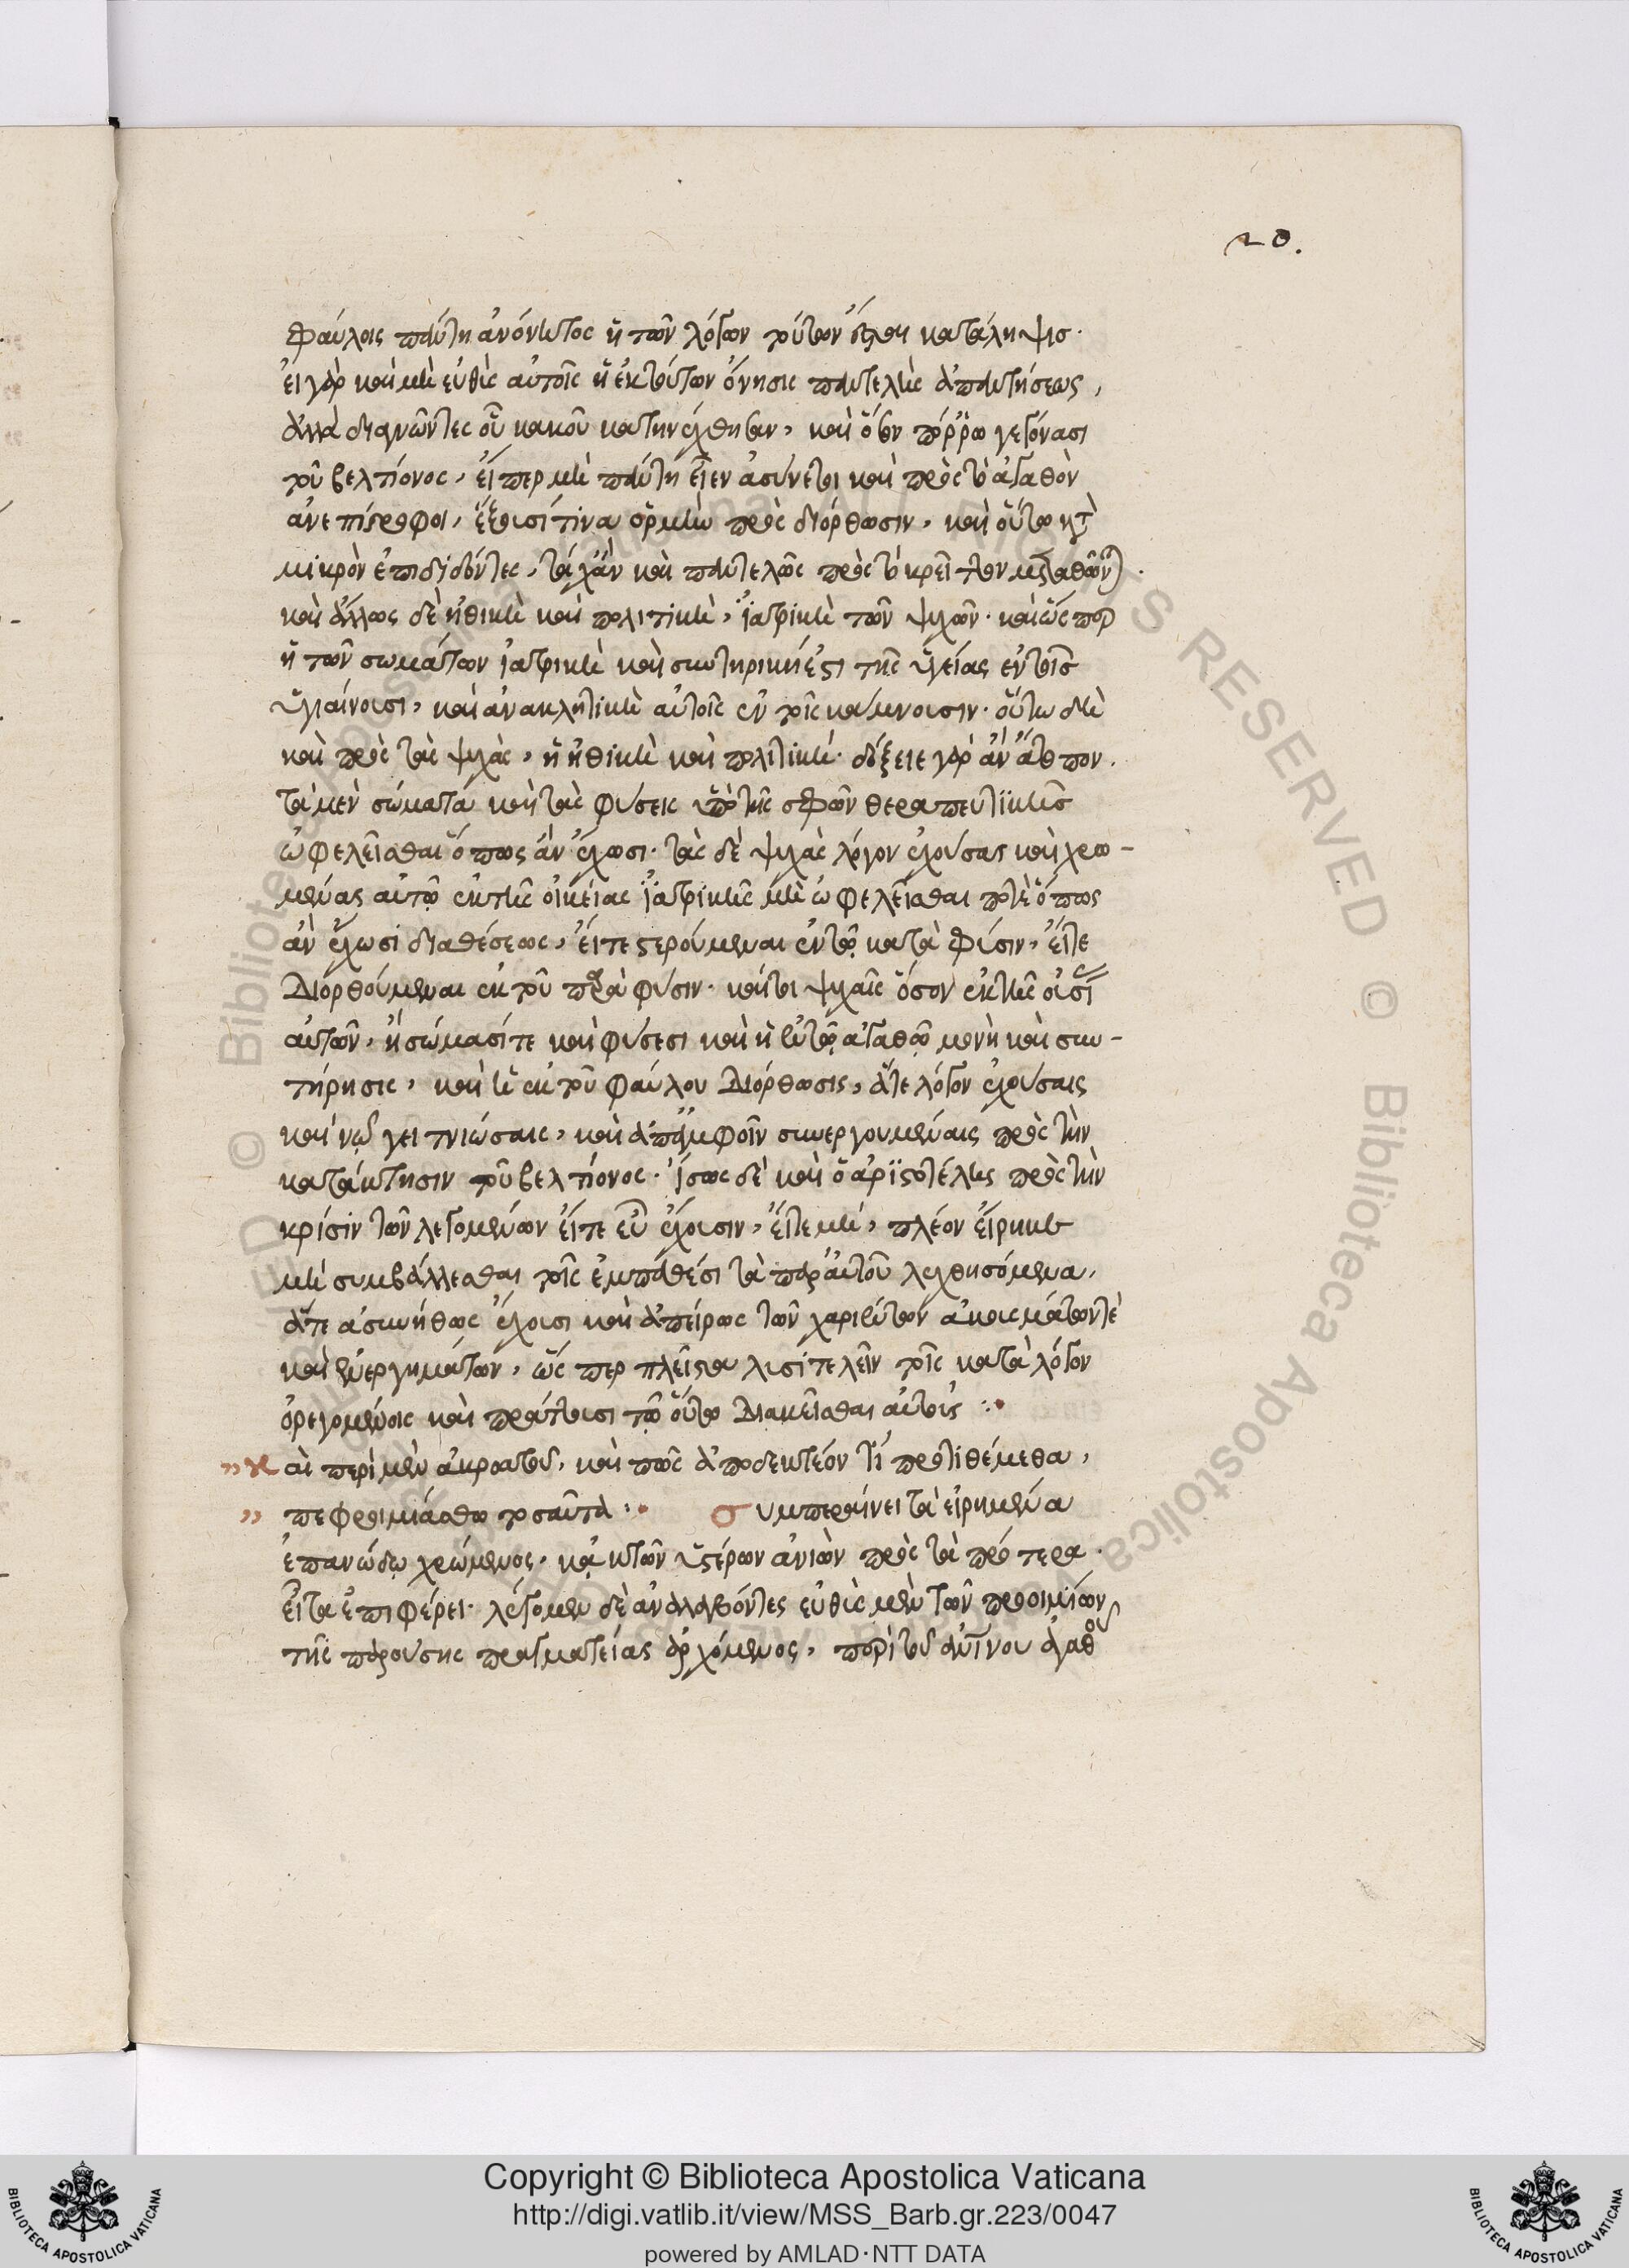 20.
φαύλοις πάντη ἀνόνητος ἡ τῶν λόγων τούτων ἔσται κατάληψις·
εἰ γὰρ καὶ μὴ εὐθὺς αὐτοῖς ἡ ἐκ τούτων ὄνησις παντελῶς ἀπαντήσειεν,
ἀλλὰ διαγνῶντες οὗ κακοῦ κατηνέχθησαν, καὶ ὅσον πόρρω γεγόνασι
τοῦ βελτίονος, εἴπερ μὴ πάντη εἶεν ἀσύνετοι καὶ πρὸς τὸ ἀγαθὸν
ἀνεπίστροφοι, ἕξουσί τινα ὁρμὴν πρὸς διόρθωσιν, καὶ οὕτω κατὰ
μικρὸν ἐπιδιδόντες, τάχ' ἂν καὶ παντελῶς πρὸς τὸ κρεῖττον μεταθῶνται·
καὶ ἄλλως δὲ ἠθικὴ καὶ πολιτικὴ, ἰατρικὴ τῶν ψυχῶν· καὶ ὥσπερ
ἡ τῶν σωμάτων ἰατρικὴ καὶ συντηρική ἐστι τῆς ὑγείας ἐν τοῖς
ὑγιαίνουσι, καὶ ἀνακλητικὴ αὐτοῖς ἐν τοῖς κάμνουσιν· οὕτω δὴ
καὶ πρὸς τὰς ψυχὰς, ἡ ἠθικὴ καὶ πολιτική· δόξειε γὰρ ἂν ἄτοπον.
τὰ μὲν σώματα καὶ τὰς φύσεις ὑπὸ τῆς σφῶν θεραπευτικῆς
ὠφελεῖσθαι ὅπως ἂν ἔχωσι· τὰς δὲ ψυχὰς λόγον ἐχούσας καὶ χρω-
μένας αὐτῷ ἐκ τῆς οἰκείας ἰατρικῆς μὴ ὠφελεῖσθαι ποτὲ ὅπως
ἂν ἔχωσι διαθέσεως, εἴτε στερούμεναι ἐν τῷ κατὰ φύσιν, εἴτε
διορθούμεναι ἐκ τοῦ παρὰ φύσιν· καίτοι ψυχαῖς ὅσον ἐκ τῆς οὐσίας
αὐτῶν, ἢ σώμασί τε καὶ φύσεσι καὶ ἡ ἐν τῷ ἀγαθῷ μονὴ καὶ συν-
τήρησις, καὶ ἡ ἐκ τοῦ φαύλου διόρθωσις, ἅτε λόγον ἐχούσαις
καὶ νῷ γειτνιώσαις, καὶ ἀπ' ἀμφοῖν συνεργουμέναις πρὸς τὴν
κατάκτησιν τοῦ βελτίονος· ἴσως δὲ καὶ ὁ ἀριστοτέλης πρὸς τὴν
κρίσιν τῶν λεγομένων εἴτε εὖ ἔχουσιν, εἴτε μὴ, πλέον εἴρηκε
μὴ συμβάλλεσθαι τοῖς ἐμπαθέσι τὰ παρ' αὐτοῦ λεχθησόμενα,
ἅτε ἀσυνήθως ἔχουσι καὶ ἀπείρως τῶν χαριέντων ἀκουσμάτων τὲ
καὶ ἐνεργημάτων, ὥσπερ πλεῖστα λυσιτελεῖν τοῖς κατὰ λόγον
ὀρεγομένοις καὶ πράττουσι τῷ οὕτω διακεῖσθαι αὐτοῖς :·
" καὶ περὶ μὲν ἀκροατοῦ, καὶ πῶς ἀποδεκτέον τί προτιθέμεθα,
" πεφροιμιάσθω τοσαῦτα :· συμπεραίνει τὰ εἰρημένα
ἐπανώδῳ χρώμενος, κἀκ τῶν ὑστέρων ἀνιὼν πρὸς τὰ πρότερα·
εἶτα ἐπιφέρει· λέγομεν δὲ ἀναλαβόντες εὐθὺς μὲν τῶν προοιμίων
τῆς παρούσης πραγματείας ἀρχόμενος, περὶ τοῦ ἀνθρωπίνου ἀγαθοῦ